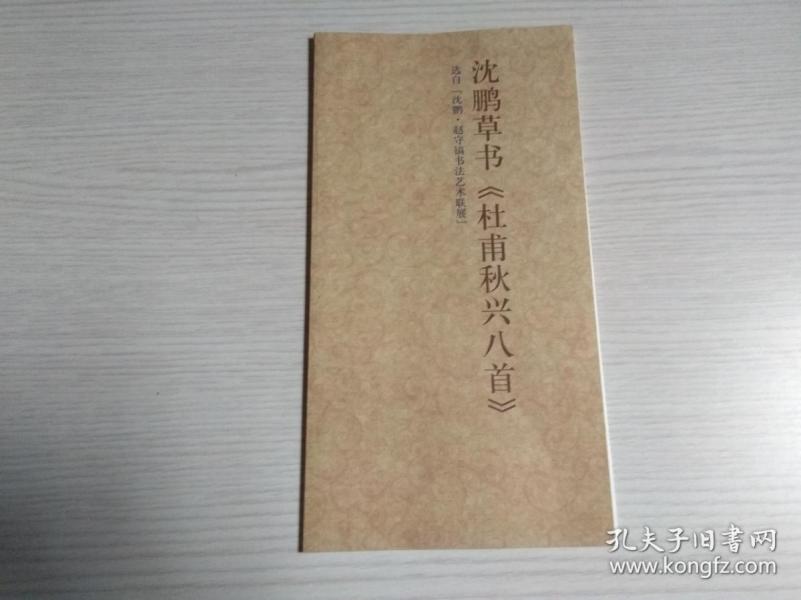 沈鹏草书《杜甫秋兴八首》
选自「沈鹏·赵守镇书法艺术联展」
孔夫子旧書网
www.kongfz.com